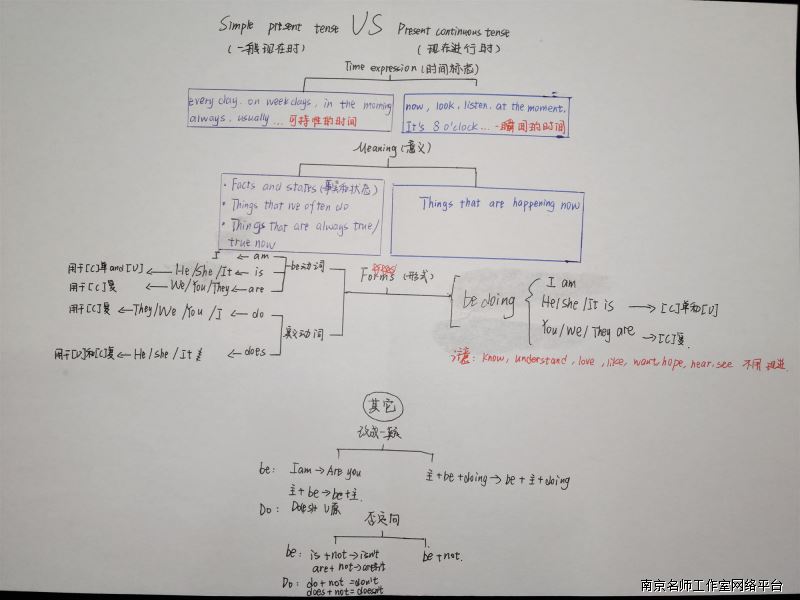 Simple present tense VS Present continuous tense
(一般现在时) (现在进行时)
Time expression (时间标志)
every day, on weekdays, in the morning
always, usually ... 可持性的时间
now, look, listen, at the moment,
It's 8 o'clock ... 一瞬间的时间
Meaning (意义)
• Facts and states (事实和状态)
• Things that we often do
• Things that are always true/
true now
Things that are happening now
Forms (形式)
I ← am
用于[C]单 and [U] ← He/She/It ← is
用于[C]复 ← We/You/They ← are
be动词
用于[C]复 ← They/We/You/I ← do
实义动词
用于[U]和[C]复 ← He/she/It ← does
be doing
I am
He/she/It is → [C]单和[U]
You/We/They are → [C]复.
注意: know, understand, love, like, want, hope, hear, see 不用现进
其它
改成一般
be: I am → Are you
主+be → be+主.
Do:
主+be+doing → be+主+doing
be: is + not → isn't
are + not → aren't
Do: do + not = don't
does + not = doesn't
be + not.
南京名师工作室网络平台